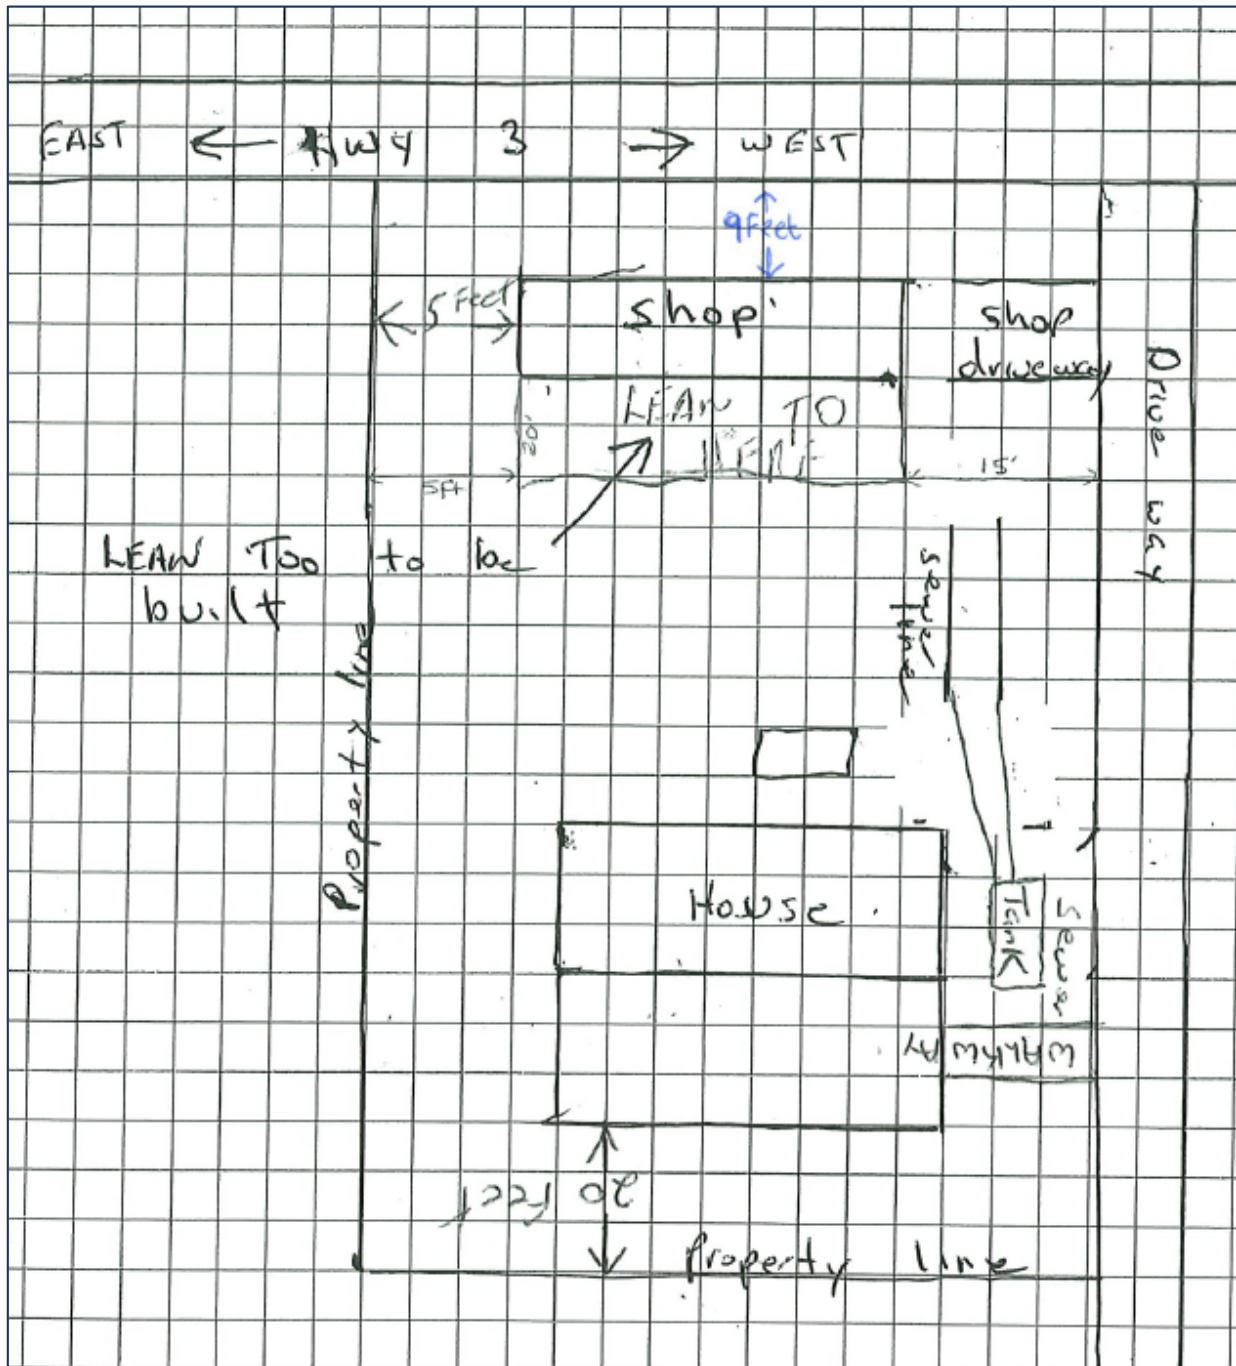 EAST ← HWY 3 → WEST
9 Feet
5 Feet
shop
shop
driveway
Drive way
LEAN TO
20'
15'
5ft
LEAN TOO to be
built
sewer
line
Property line
House
Tank
Sewer
WALKWAY
20 Feet
Property line